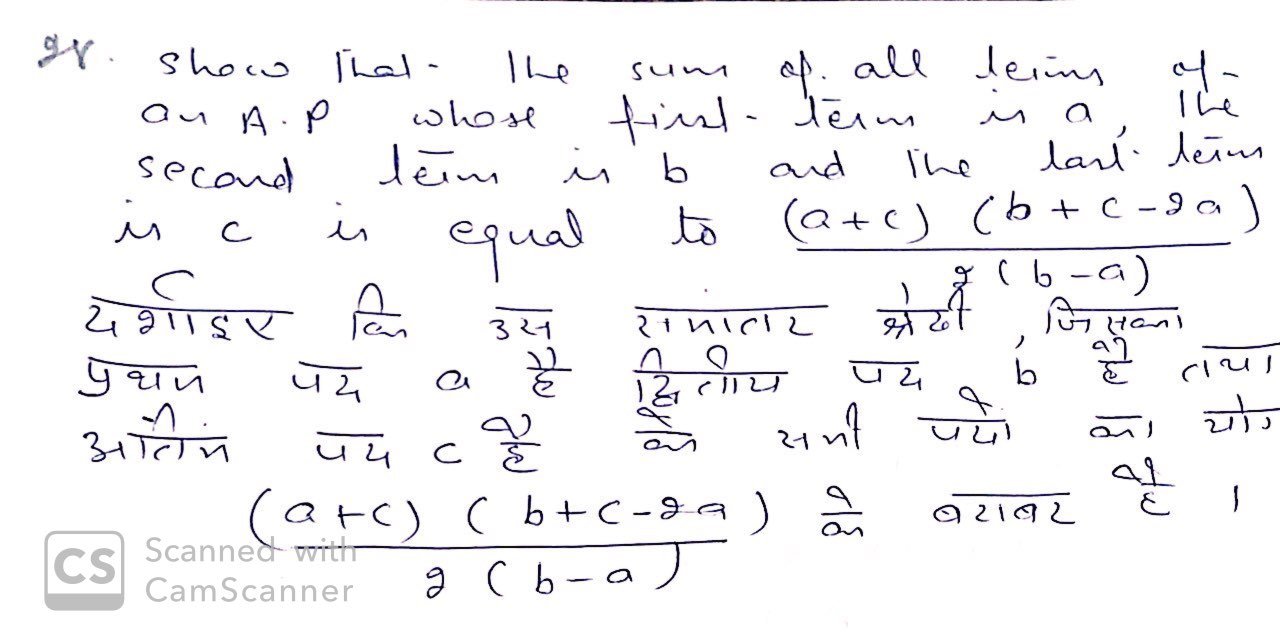 28. Show that the sum of all terms of
an A.P whose first term is a, the
second term is b and the last term
is c is equal to (a+c) (b+c-2a)
2(b-a)
दर्शाइए कि उस समातर श्रेढी, जिसका
प्रथम पद a है द्वितीय पद b है तथा
अंतिम पद c है के सभी पदों का योग
(a+c) (b+c-2a) के बराबर है ।
2(b-a)
CS Scanned with
CamScanner